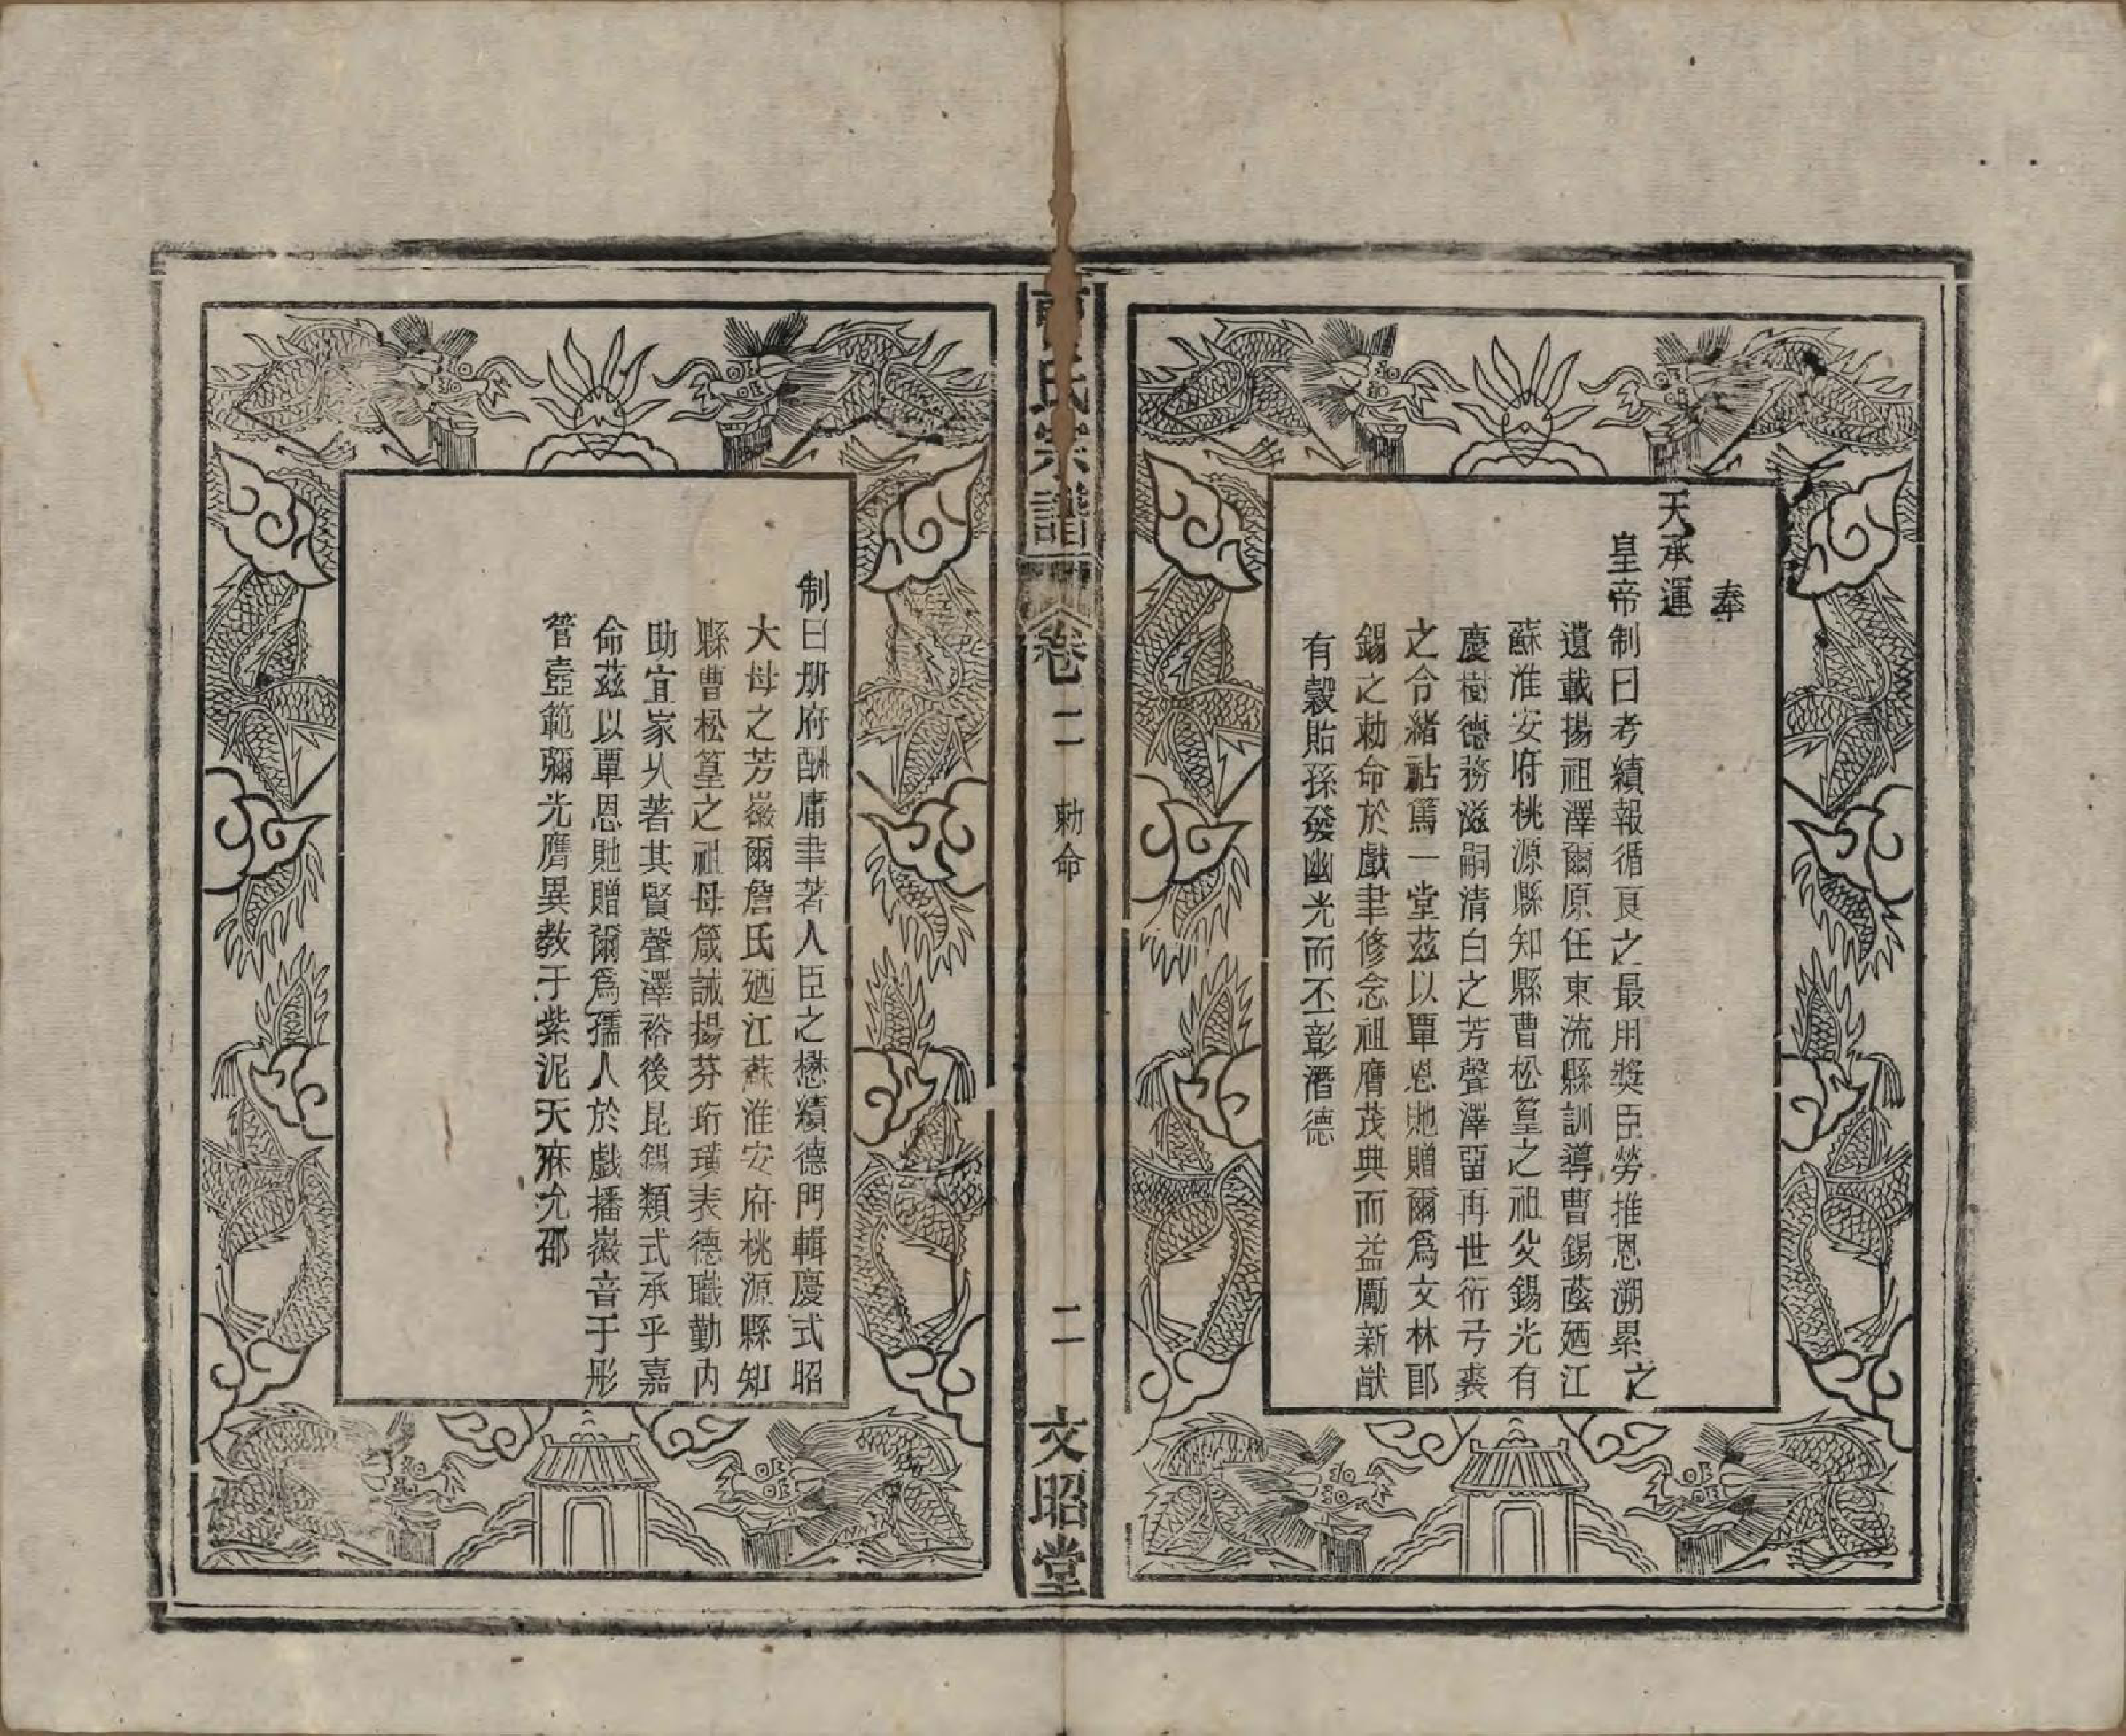 奉
天承運
皇帝制曰考績報循良之最用獎臣勞推恩溯累之
遺載揚祖澤爾原任東流縣訓導曹錫蔭廼江
蘇淮安府桃源縣知縣曹松篁之祖父錫光有
慶樹德務滋嗣清白之芳聲澤畱再世衍弓裘
之令緒祜篤一堂茲以覃恩貤贈爾爲文林郎
錫之勅命於戲聿修念祖膺茂典而益勵新猷
有穀貽孫發幽光而丕彰潛德
氏宗譜
卷二
勅命
二
文昭堂
制曰册府酬庸聿著人臣之懋績德門輯慶式昭
大母之芳徽爾詹氏廼江蘇淮安府桃源縣知
縣曹松篁之祖母箴誡揚芬珩璜表德職勤內
助宜家久著其賢聲澤裕後昆錫類式承乎嘉
命茲以覃恩貤贈爾爲孺人於戲播徽音于彤
管壼範彌光膺異教于紫泥天庥允邵